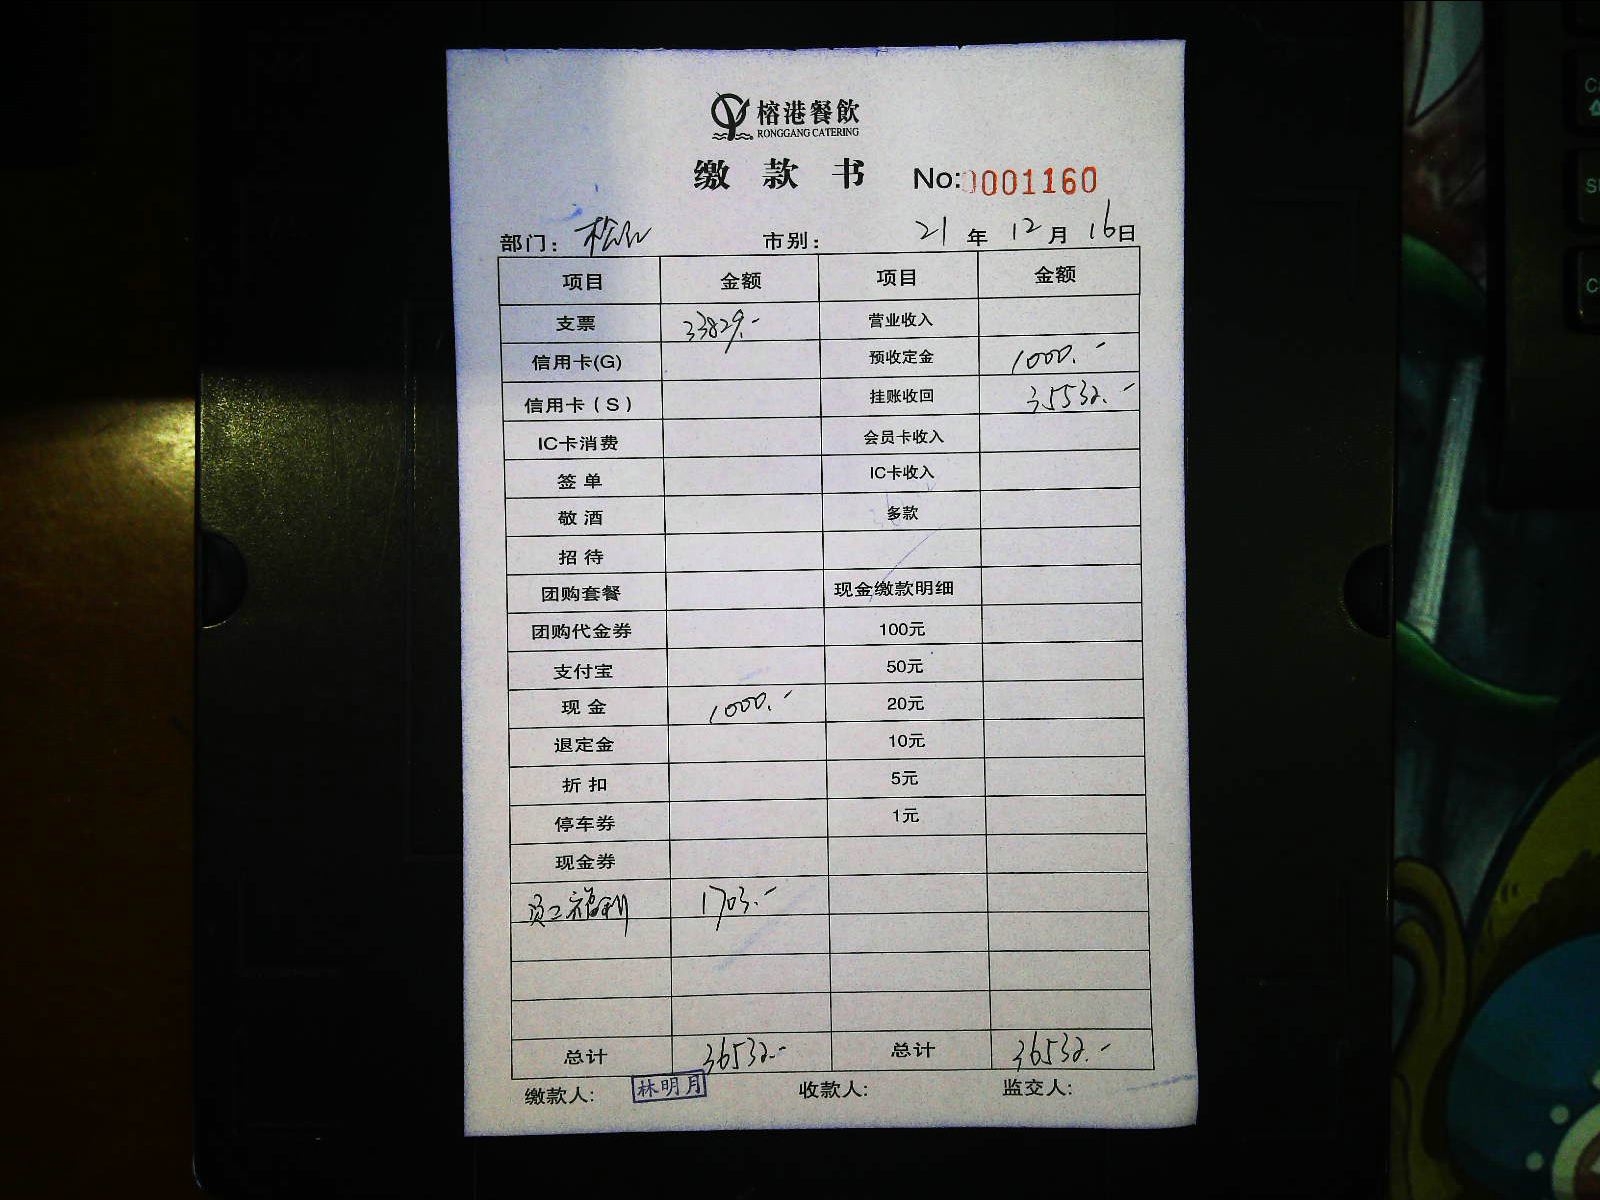 榕港餐飲
RONGGANG CATERING
缴款书 No:0001160
部门： 市别： 21年12月16日
项目 金额 项目 金额
支票 33829.- 营业收入
信用卡(G) 预收定金 1000.-
信用卡（S） 挂账收回 35532.-
IC卡消费 会员卡收入
签单 IC卡收入
敬酒 多款
招待
团购套餐 现金缴款明细
团购代金券 100元
支付宝 50元
现金 1000.- 20元
退定金 10元
折扣 5元
停车券 1元
现金券
员工福利 1703.-
总计 36532.- 总计 36532.-
缴款人: 林明月 收款人: 监交人: